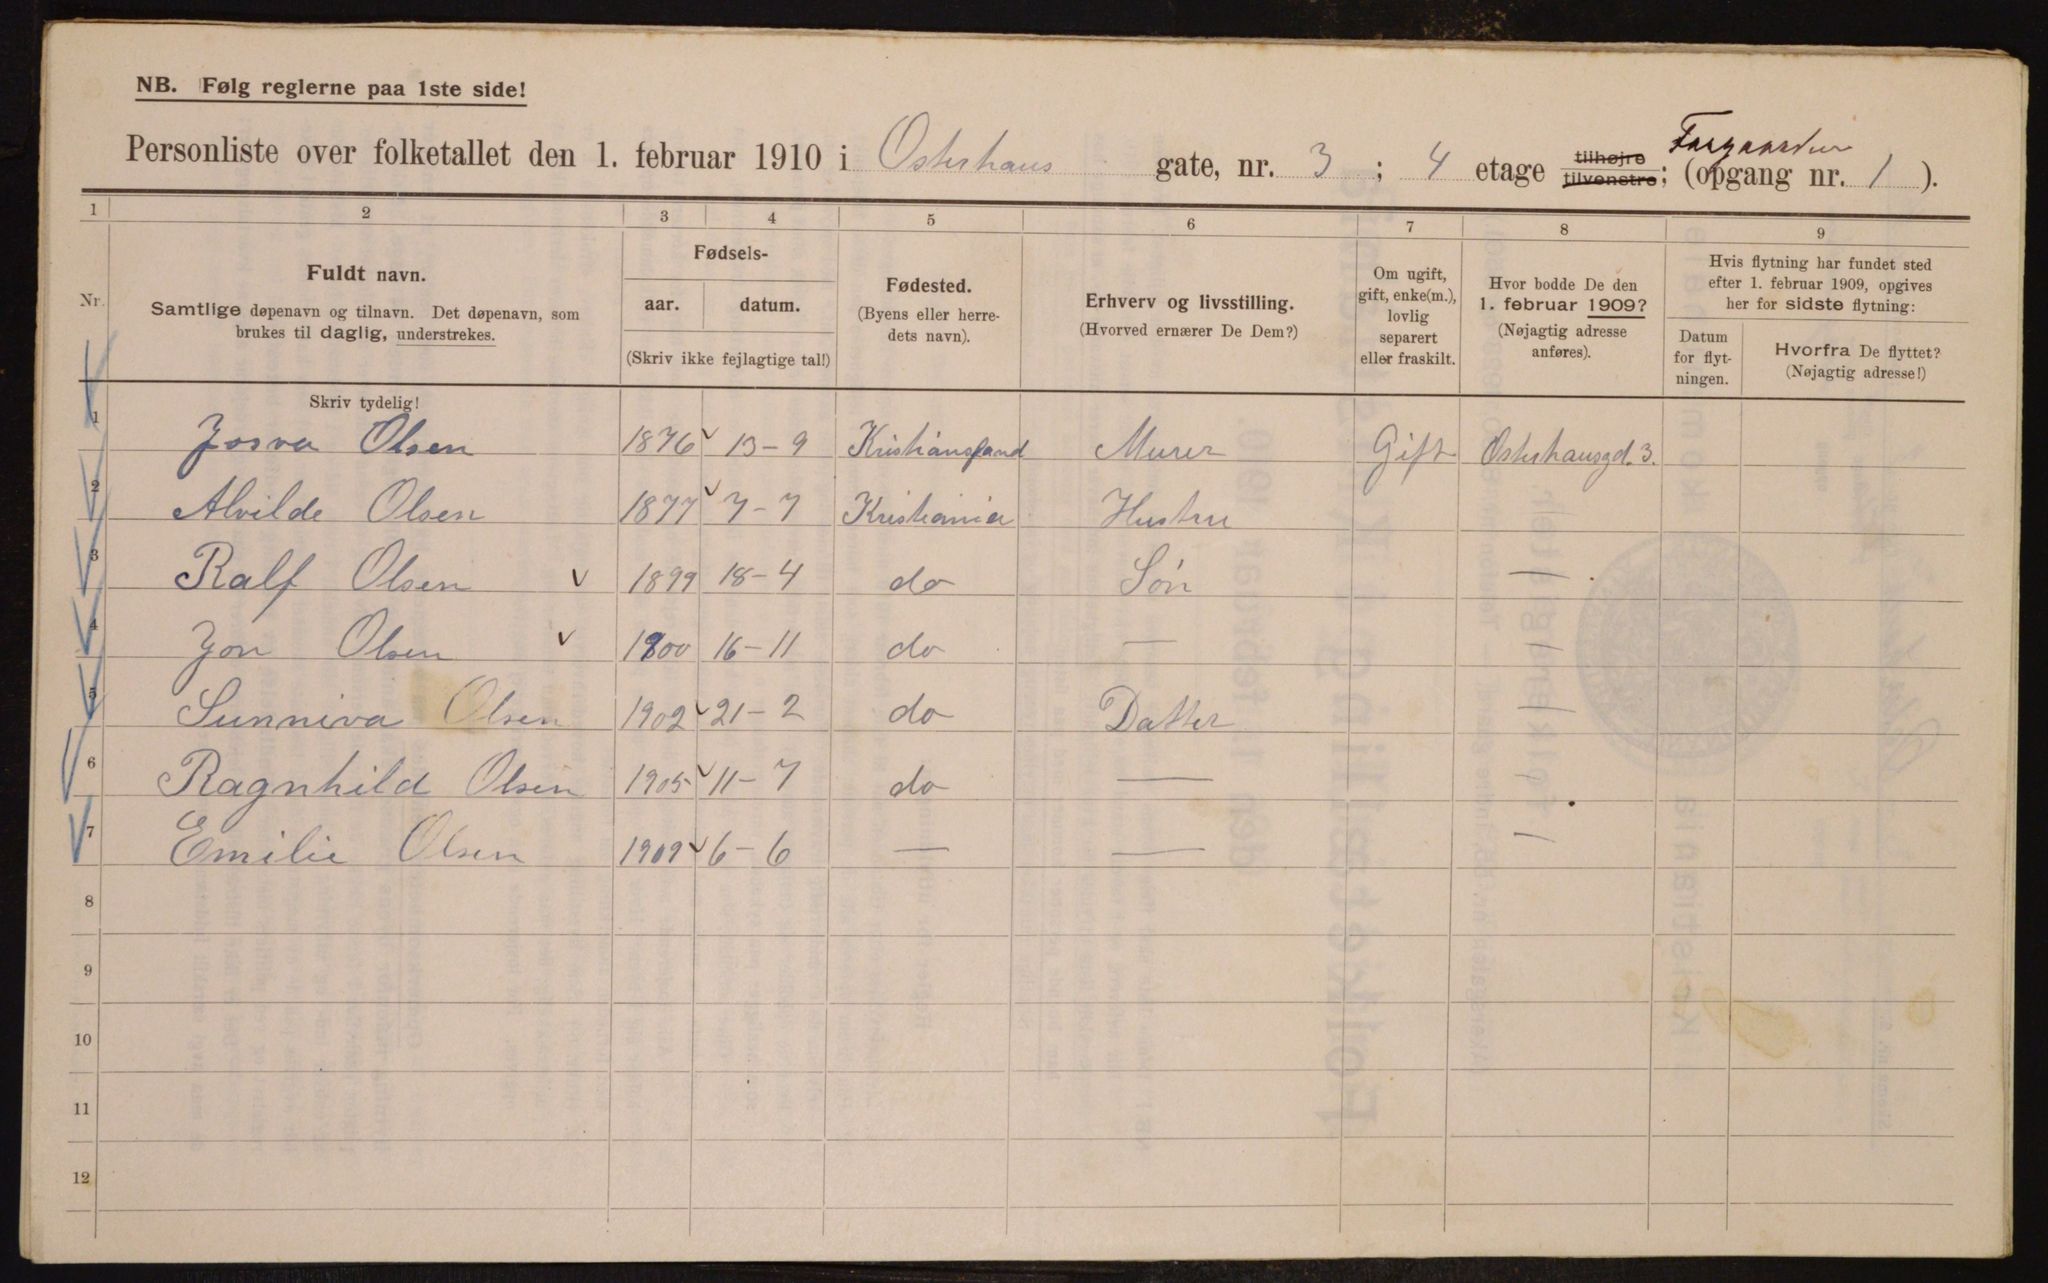 NB. Følg reglerne paa 1ste side!
Forgaarden
Personliste over folketallet den 1. februar 1910 i Osterhaus gate, nr. 3 ; 4 etage tilhøjre tilvenstre; (opgang nr. 1 ).
1 2 3 4 5 6 7 8 9
Nr.
Fuldt navn.
Samtlige døpenavn og tilnavn. Det døpenavn, som
brukes til daglig, understrekes.
Fødsels-
aar. datum.
(Skriv ikke fejlagtige tal!)
Fødested.
(Byens eller herre-
dets navn).
Erhverv og livsstilling.
(Hvorved ernærer De Dem?)
Om ugift,
gift, enke(m.),
lovlig
separert
eller fraskilt.
Hvor bodde De den
1. februar 1909?
(Nøjagtig adresse
anføres).
Hvis flytning har fundet sted
efter 1. februar 1909, opgives
her for sidste flytning:
Datum
for flyt-
ningen.
Hvorfra De flyttet?
(Nøjagtig adresse!)
Skriv tydelig!
1 Josva Olsen 1876 13-9 Kristiansand Murer Gift Osterhausgd. 3.
2 Alvilde Olsen 1877 7-7 Kristiania Hustru
3 Ralf Olsen 1899 18-4 do Søn —
4 Jon Olsen 1900 16-11 do — —
5 Sunniva Olsen 1902 21-2 do Datter —
6 Ragnhild Olsen 1905 11-7 do — —
7 Emilie Olsen 1909 6-6 — — —
8
9
10
11
12